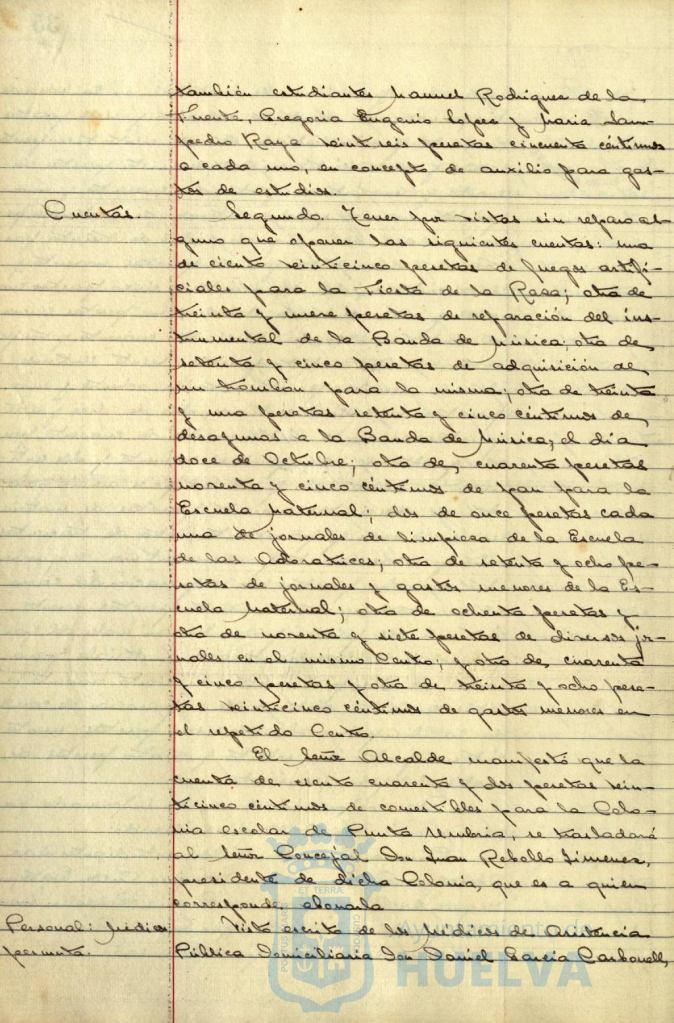 también estudiantes Manuel Rodríguez de la
Fuente, Gregoria Eugenio López y María Sam-
pedro Raya veintiseis pesetas cincuenta céntimos
a cada uno, en concepto de auxilio para gas-
tos de estudios.
Cuentas. Segundo. Tener por vistas sin reparo al-
guno que oponer las siguientes cuentas: una
de ciento veinticinco pesetas de fuegos artifi-
ciales para la Fiesta de la Raza; otra de
treinta y nueve pesetas de reparación del ins-
trumental de la Banda de Música; otra de
setenta y cinco pesetas de adquisición de
un trombón para la misma; otra de treinta
y una pesetas setenta y cinco céntimos de
desayunos a la Banda de Música, el día
doce de Octubre; otra de cuarenta pesetas
noventa y cinco céntimos de pan para la
Escuela Maternal; dos de once pesetas cada
una de jornales de limpieza de la Escuela
de las Adoratrices; otra de setenta y ocho pe-
setas de jornales y gastos menores de la Es-
cuela Maternal; otra de ochenta pesetas y
otra de noventa y siete pesetas de diversos jor-
nales en el mismo Centro; y otra de cuarenta
y cinco pesetas y otra de treinta y ocho pese-
tas veinticinco céntimos de gastos menores en
el repetido Centro.
El Señor Alcalde manifestó que la
cuenta de ciento cuarenta y dos pesetas vein-
ticinco céntimos de comestibles para la Colo-
nia escolar de Punta Umbría, se trasladará
al Señor Concejal Don Juan Rebollo Jimenez,
presidente de dicha Colonia, que es a quien
corresponde abonarla
Personal: Médicos Visto escrito de los Médicos de Asistencia
permuta. Pública Domiciliaria Don Daniel García Carbonell,
HUELVA